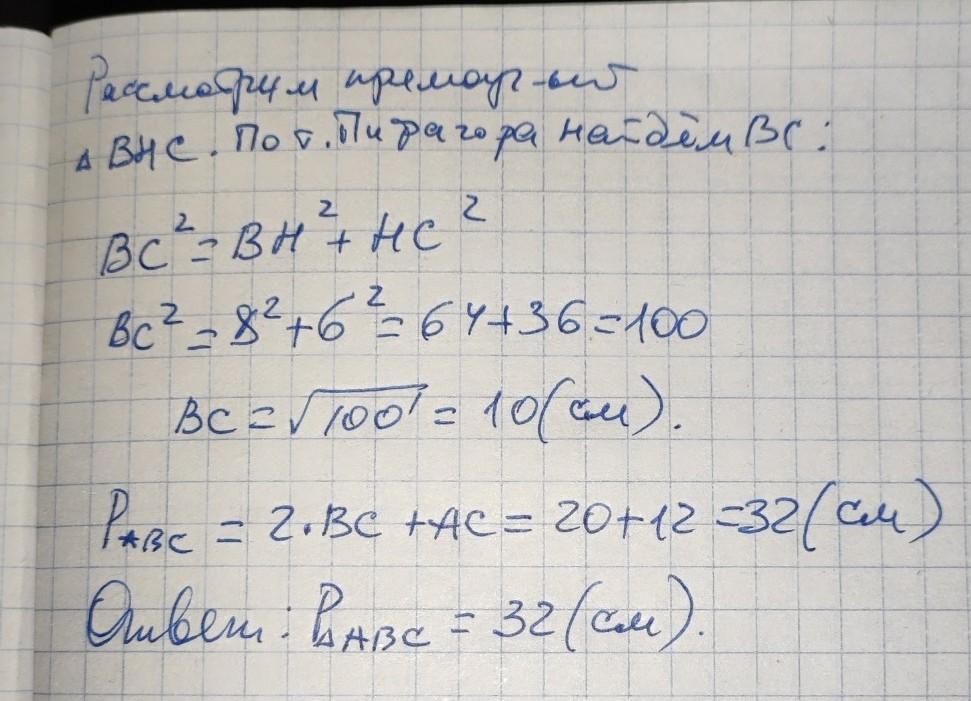 Рассмотрим прямоуг-ый
△ BHC. По т. Пифагора найдём BC:
BC² = BH² + HC²
BC² = 8² + 6² = 64 + 36 = 100
BC = √100 = 10 (см).
P△ABC = 2·BC + AC = 20 + 12 = 32 (см)
Ответ: P△ABC = 32 (см).